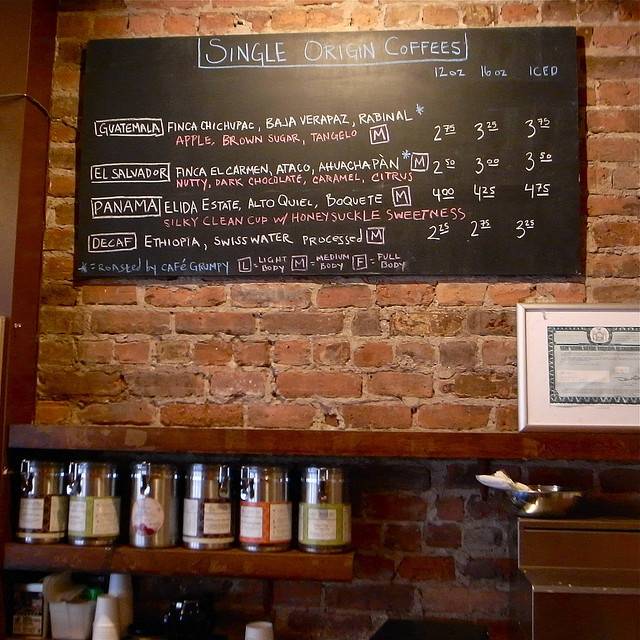 SINGLE ORIGIN COFFEES
12oz 16oz ICED
GUATEMALA FINCA CHICHUPAC, BAJA VERAPAZ, RABINAL * 2 75 3 25 3 75
APPLE, BROWN SUGAR, TANGELO M
EL SALVADOR FINCA EL CARMEN, ATACO, AHUACHAPÀN * M 2 50 3 00 3 50
NUTTY, DARK CHOCOLATE, CARAMEL, CITRUS
PANAMA ELIDA ESTATE, ALTO QUIEL, BOQUETE M 4 00 4 25 4 75
SILKY CLEAN CUP w/ HONEYSUCKLE SWEETNESS
DECAF ETHIOPIA, SWISS WATER PROCESSED M 2 25 2 75 3 25
* = ROASTED by CAFÉ GRUMPY L = LIGHT BODY M = MEDIUM BODY F = FULL BODY